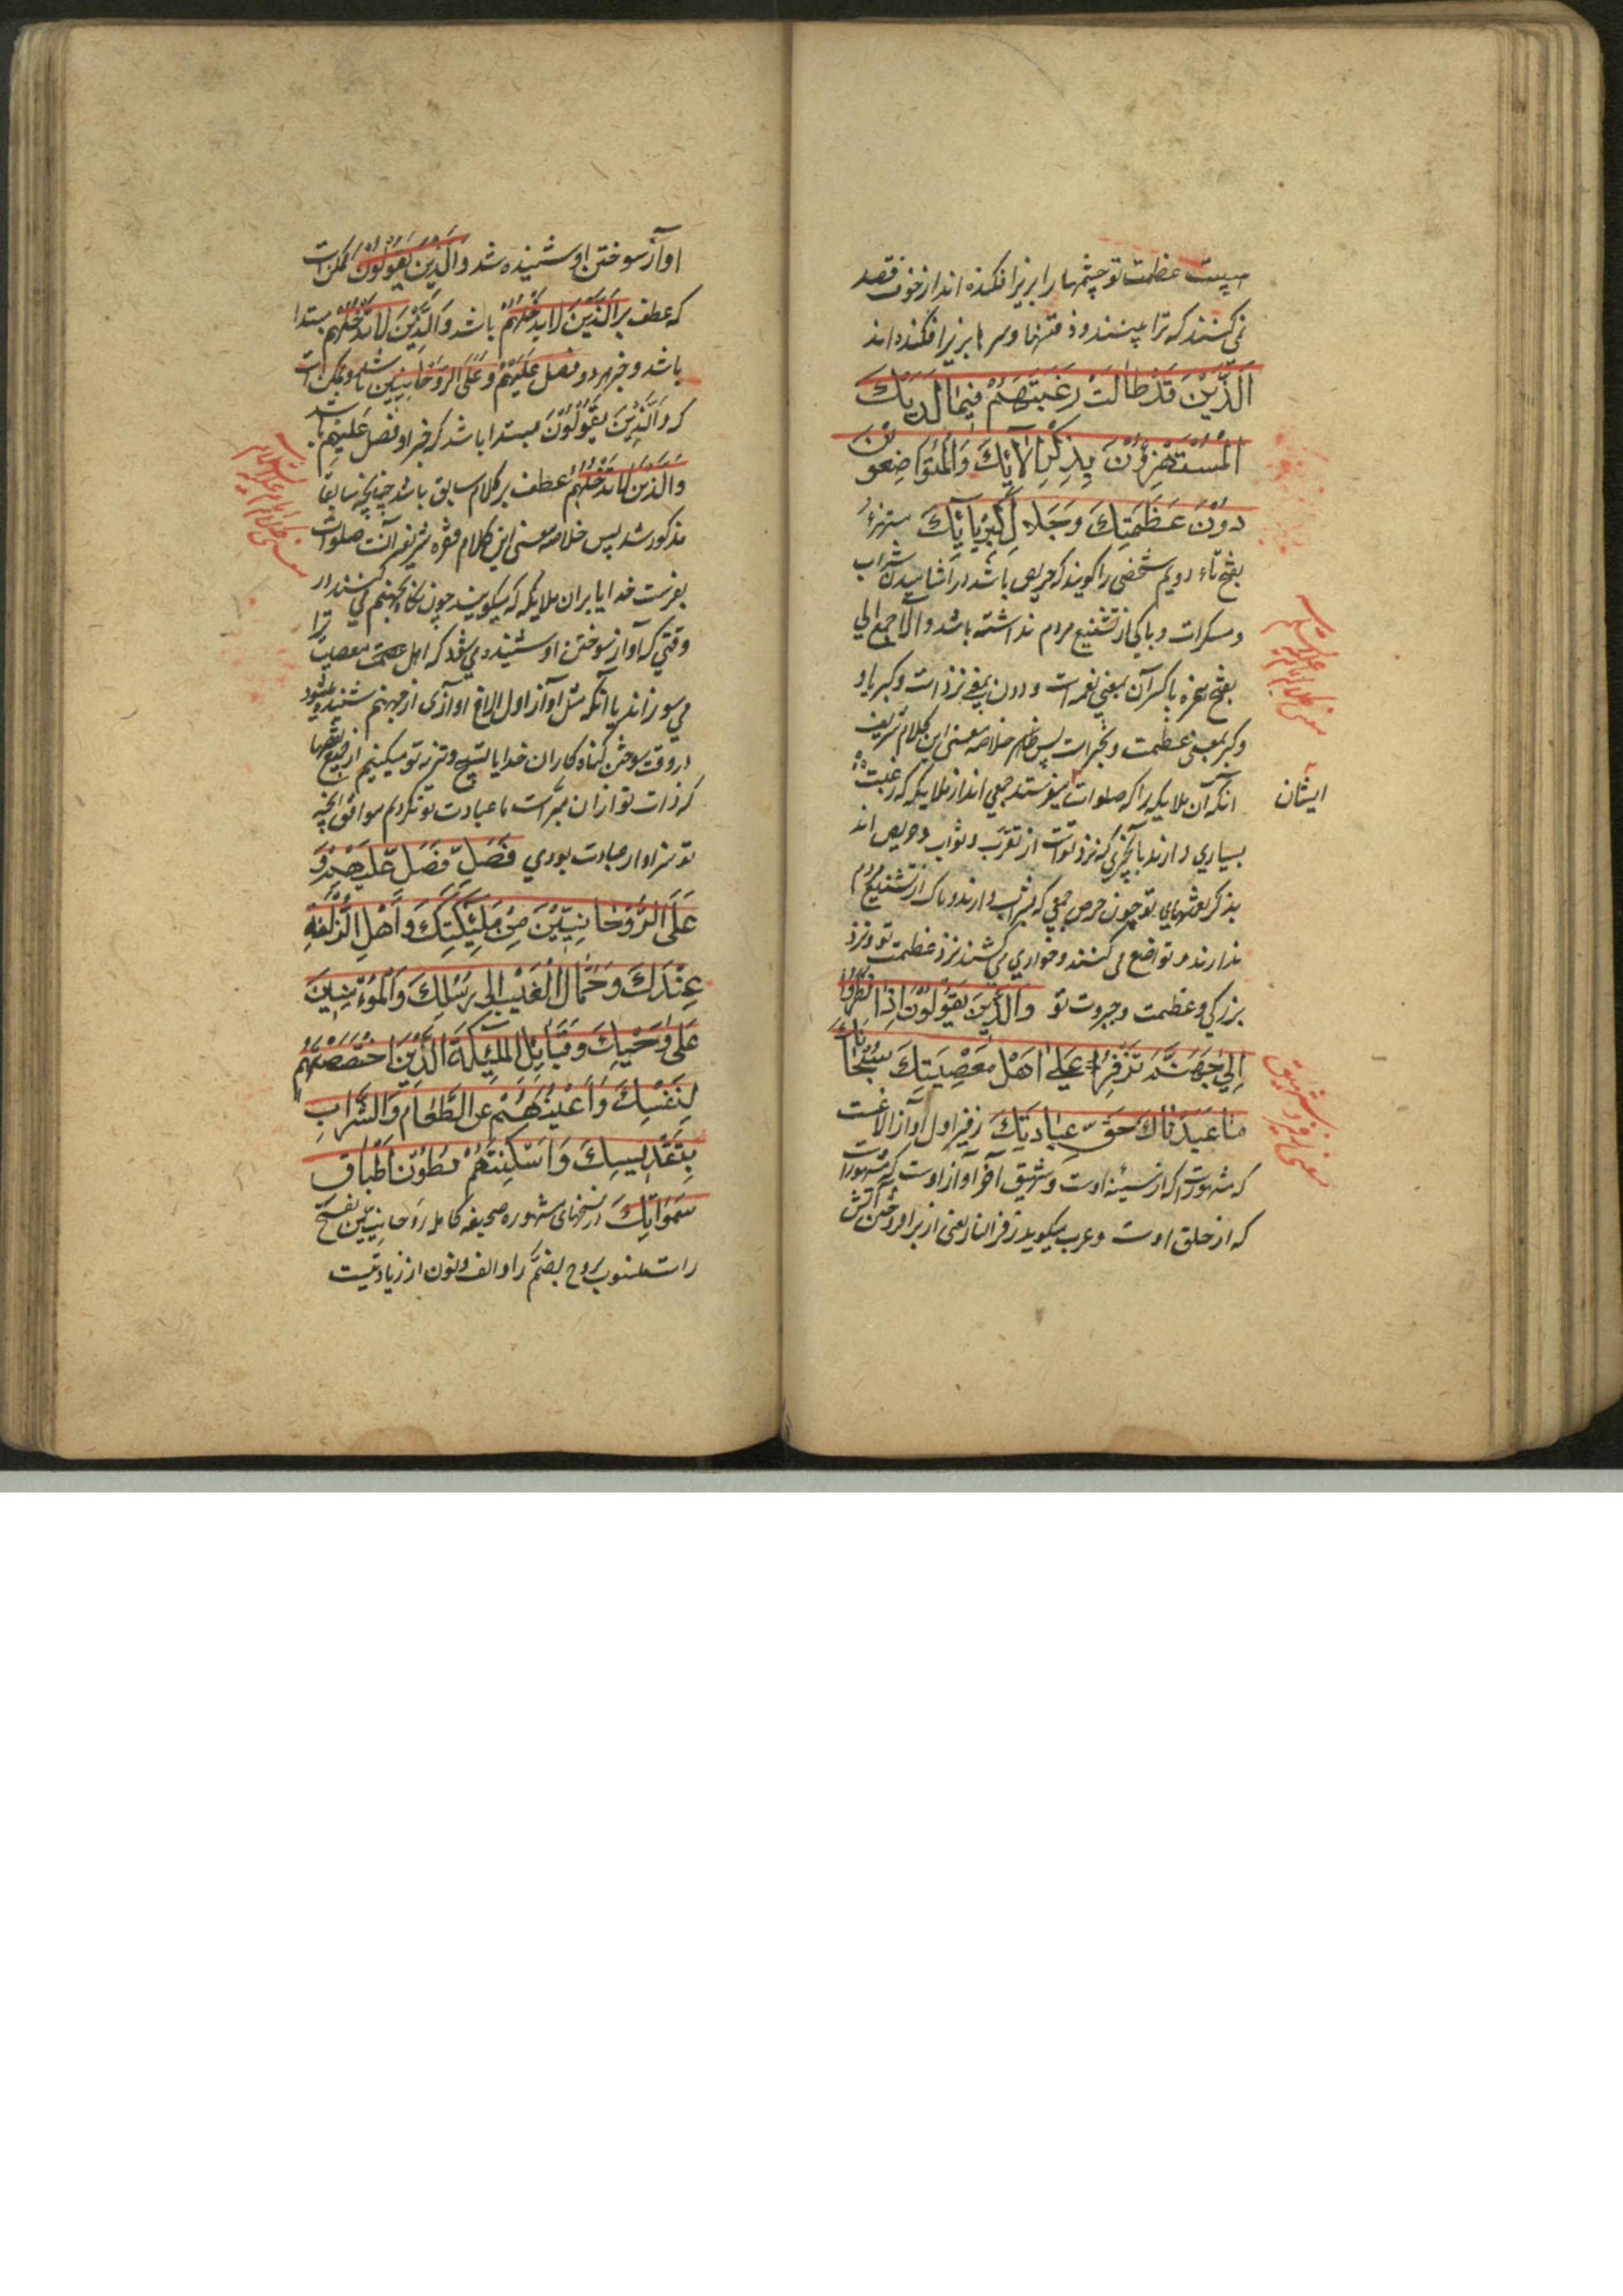 هیبت عظمت تو چشمها را بزیر افکنده اند از خوف قصد
نمی کنند که ترا ببینند و ذقنها و سرها بزیر افکنده اند
اَلَّذِیْنَ قَدْ طالَتْ رَغْبَتُهُمْ فِیْما لَدَیْكَ
المُسْتَهْتَرُوْنَ بِذِكْرِ الآئِكَ وَالْمُتَواضِعُوْنَ
دُوْنَ عَظَمَتِكَ وَجَلالِ كِبْرِیائِكَ مستهتر
بفتح تاء دویم شخصی را کویند که حریص باشد در آشامیدن شراب
و مسکرات و باکی از تشنیع مردم نداشته باشد و الآء جمع الی
بفتح همزه یا کسر آن بمعنی نعمت است و دون بمعنی نزد است و کبریا و
کبر بمعنی عظمت و تجبر است پس خلاصه معنی این کلام شریف
آنکه آن ملایکه را که صلوات میفرستد جمعی اند از ملایکه که رغبت
ایشان
بسیاری دارند بآنچیزی که نزد تو است از تقرب و ثواب و حریص اند
بذکر نعمتهای تو چون حرص جمعی که شراب دارند و باک از تشنیع مردم
ندارند و تواضع می کنند و خواری می کشند نزد عظمت تو و نزد
بزرکی و عظمت و جبروت تو وَالَّذِیْنَ یَقُوْلُوْنَ اِذا نَظَرُوْا
اِلی جَهَنَّمَ تَزْفِرُ عَلی اَهْلِ مَعْصِیَتِكَ سُبْحانَكَ
ما عَبَدْناكَ حَقَّ عِبادَتِكَ زفیر اول آواز الاغست
که از سینهٔ اوست و شهیق آخر آواز اوست
که از حلق اوست و عرب میکوید زفر النار یعنی از برافروختن آتش
معنی کلام امام علیه السلام
معنی زفیر و شهیق
آواز سوختن او شنیده شد وَالَّذِیْنَ یَقُوْلُوْنَ ممکن است
که عطف بر اَلَّذِیْنَ لا تَدْخُلُهُمْ باشد وَالَّذِیْنَ لا تَدْخُلُهُمْ مبتدا
باشد و خبر هر دو فصل عَلَیْهِمْ وَعَلَی الرَّوْحانِیِّیْنَ باشد و ممکن است
که وَالَّذِیْنَ یَقُوْلُوْنَ مبتدا باشد که خبر او فصل عَلَیْهِمْ باشد
وَالَّذِیْنَ لا تَدْخُلُهُمْ عطف بر کلام سابق باشد چنانچه سابقا
مذکور شد پس خلاصه معنی این کلام فقره شریفه آنست صلوات
بفرست خدایا بران ملایکه که میکویند چون نکاه بجهنم می کنند در
وقتی که آواز سوختن او شنیده می شود که اهل معصیت ترا
می سوزاند یا آنکه مثل آواز اول الاغ آوازی از جهنم شنیده میشود
در وقت سوختن کناه کاران خدایا تسبیح و تنزیه تو میکنیم از جمیع نقصها
که ذات تو از ان مبراست ما عبادت تو نکردیم موافق آنچه
تو سزاوار عبادت بودی فَصَلِّ فَصَلِّ عَلَیْهِمْ وَ
عَلَی الرَّوْحانِیِّیْنَ مِنْ مَلٰئِكَتِكَ وَ اَهْلِ الزُّلْفَةِ
عِنْدَكَ وَحُمَّالِ الْغَیْبِ اِلی رُسُلِكَ وَالْمُؤْتَمَنِیْنَ
عَلی وَحْیِكَ وَقَبائِلِ الْمَلٰئِكَةِ الَّذِیْنَ اخْتَصَصْتَهُمْ
لِنَفْسِكَ وَاَغْنَیْتَهُمْ عَنِ الطَّعامِ وَالشَّرابِ
بِتَقْدِیسِكَ وَاَسْكَنْتَهُمْ بُطُوْنَ اَطْباقِ
سَمٰوَاتِكَ در نسخهای مشهوره صحیفه کامله رَوحانِیِّین بفتح
راست منسوب بروح بضم را و الف و نون از زیادتیست
معنی کلام امام علیه السلام